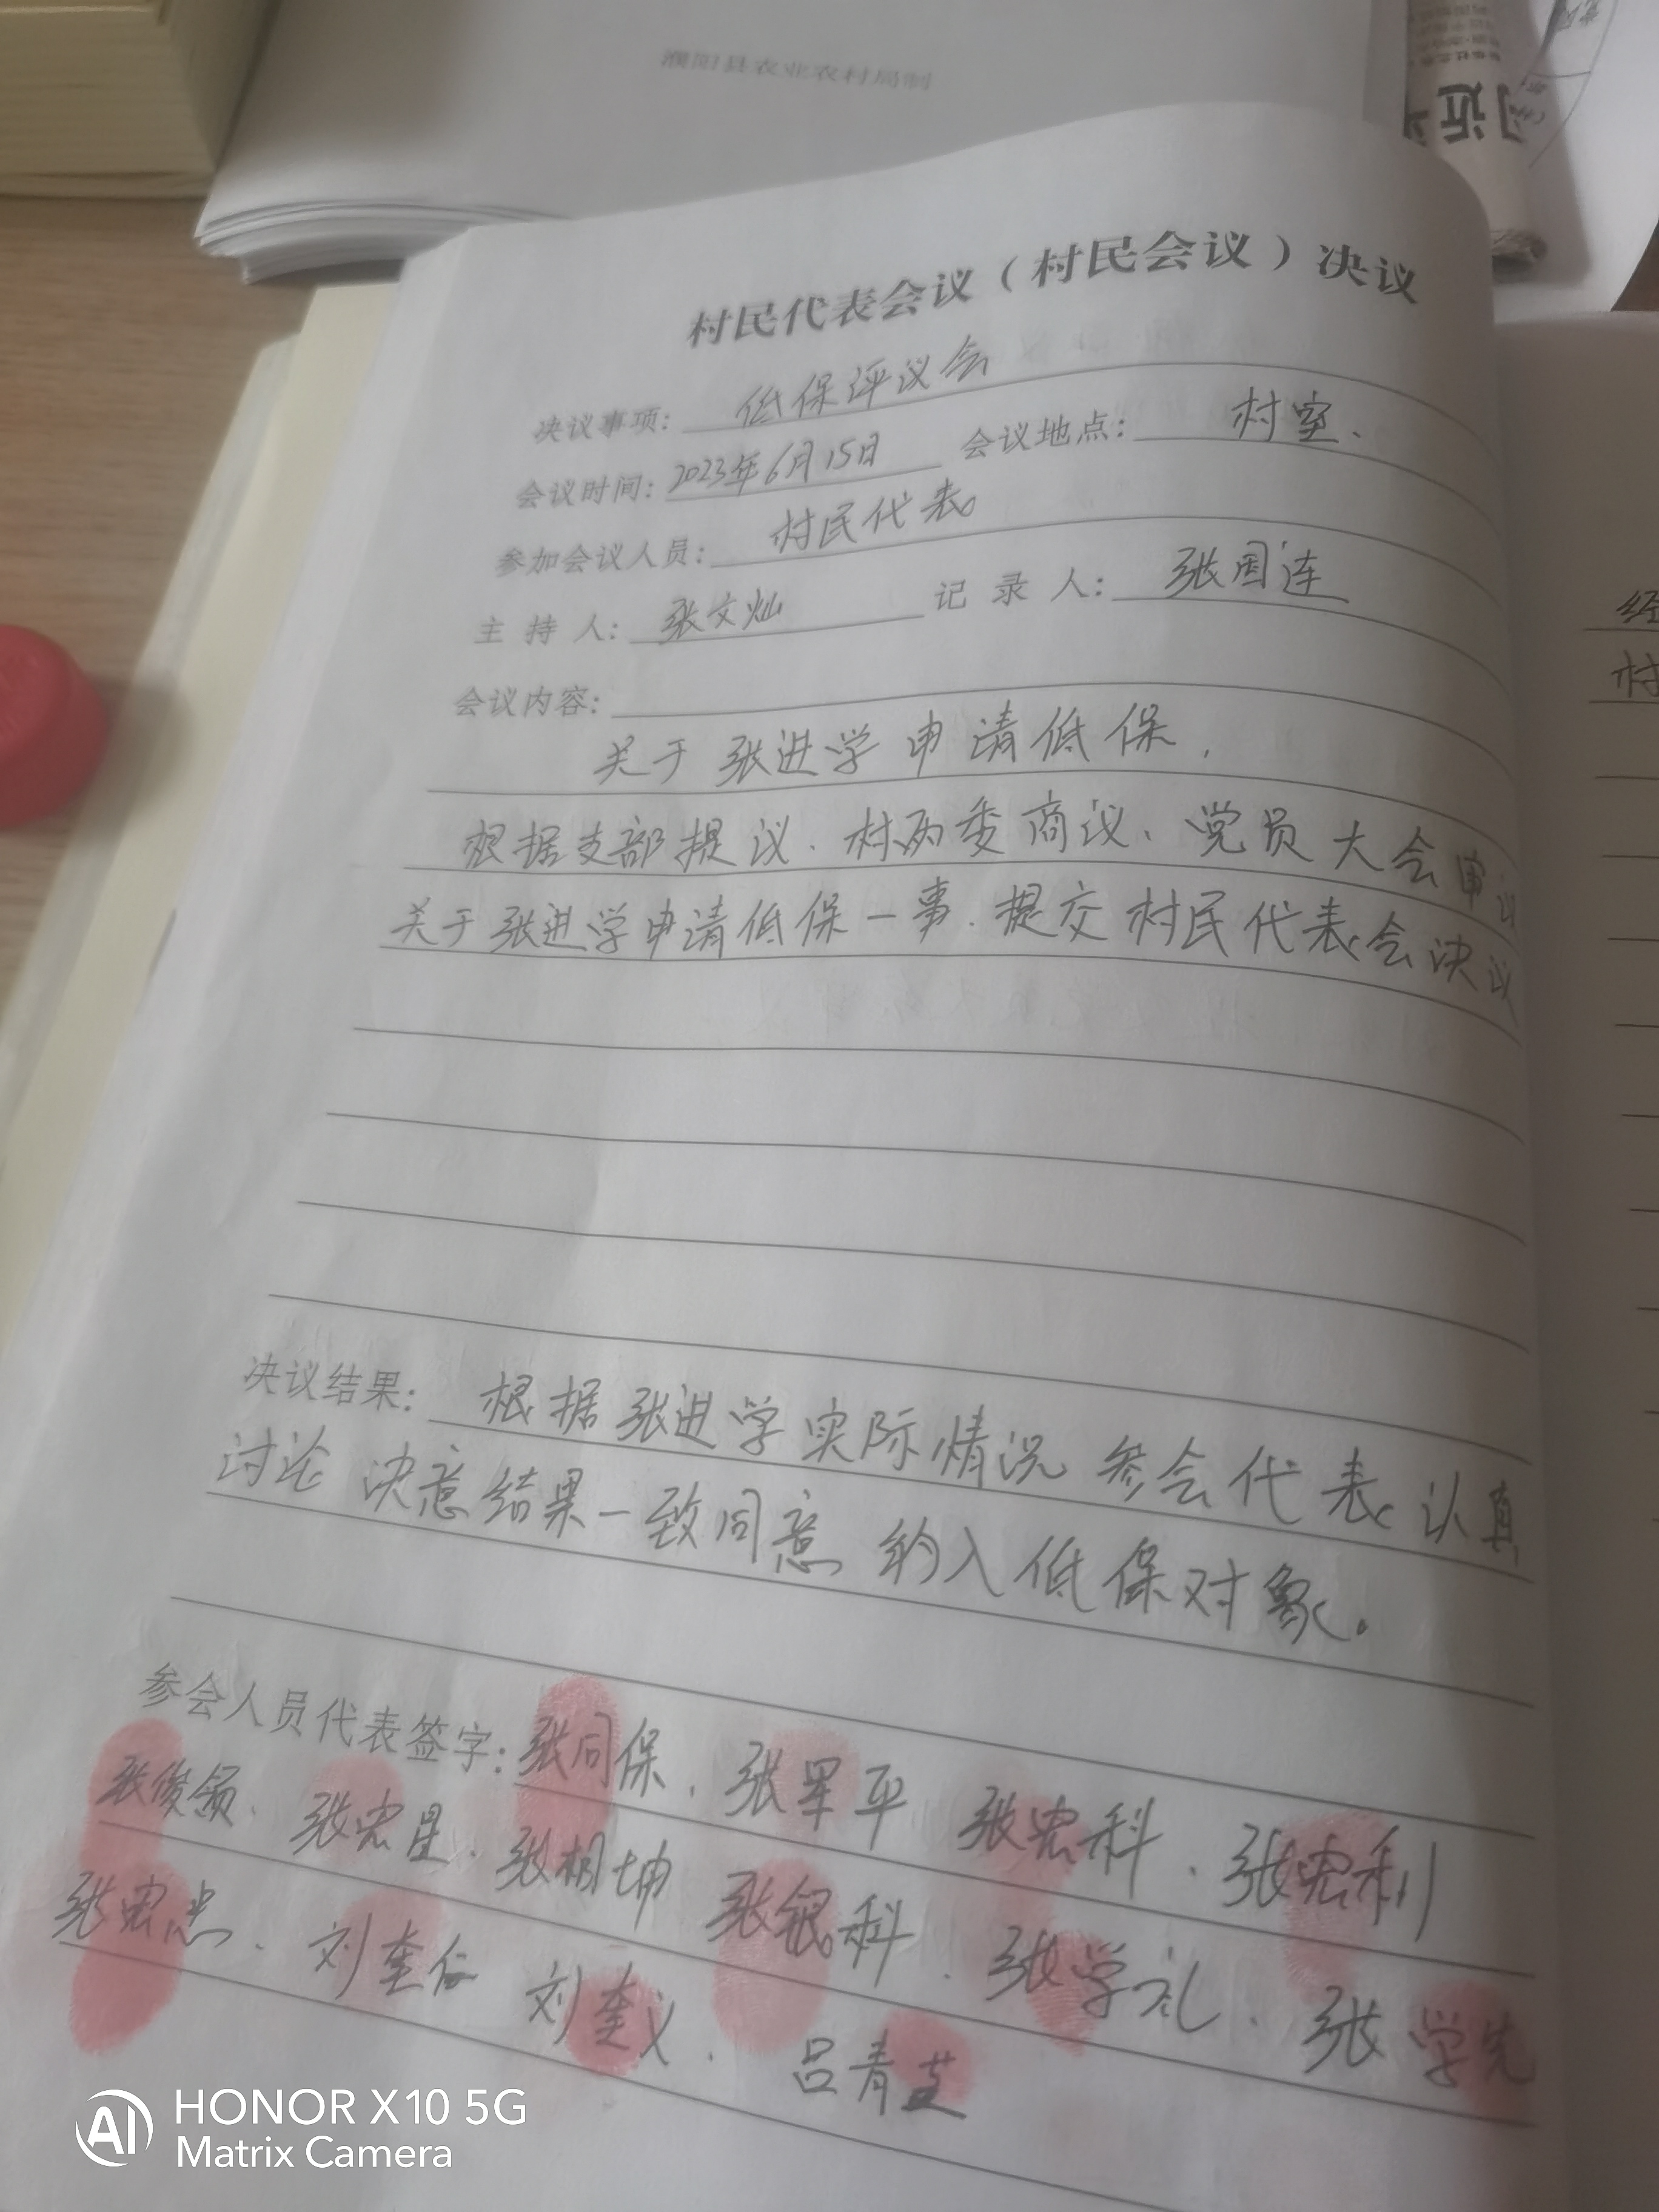 濮阳县农业农村局制
习近平
村民代表会议（村民会议）决议
决议事项: 低保评议会
会议时间: 2023年6月15日 会议地点: 村室.
参加会议人员: 村民代表
主 持 人: 张文灿 记 录 人: 张国连
会议内容:
关于张进学申请低保.
根据支部提议.村两委商议、党员大会审议
关于张进学申请低保一事.提交村民代表会决议
决议结果: 根据张进学实际情况 参会代表认真
讨论 决意结果一致同意 纳入低保对象.
参会人员代表签字: 张同保. 张军平 张宏科. 张宏利
张俊领. 张宏星. 张相坤 张银科. 张学礼. 张学先
张宏忠. 刘奎仁 刘奎义. 吕青芝
经
村
HONOR X10 5G
Matrix Camera
AI